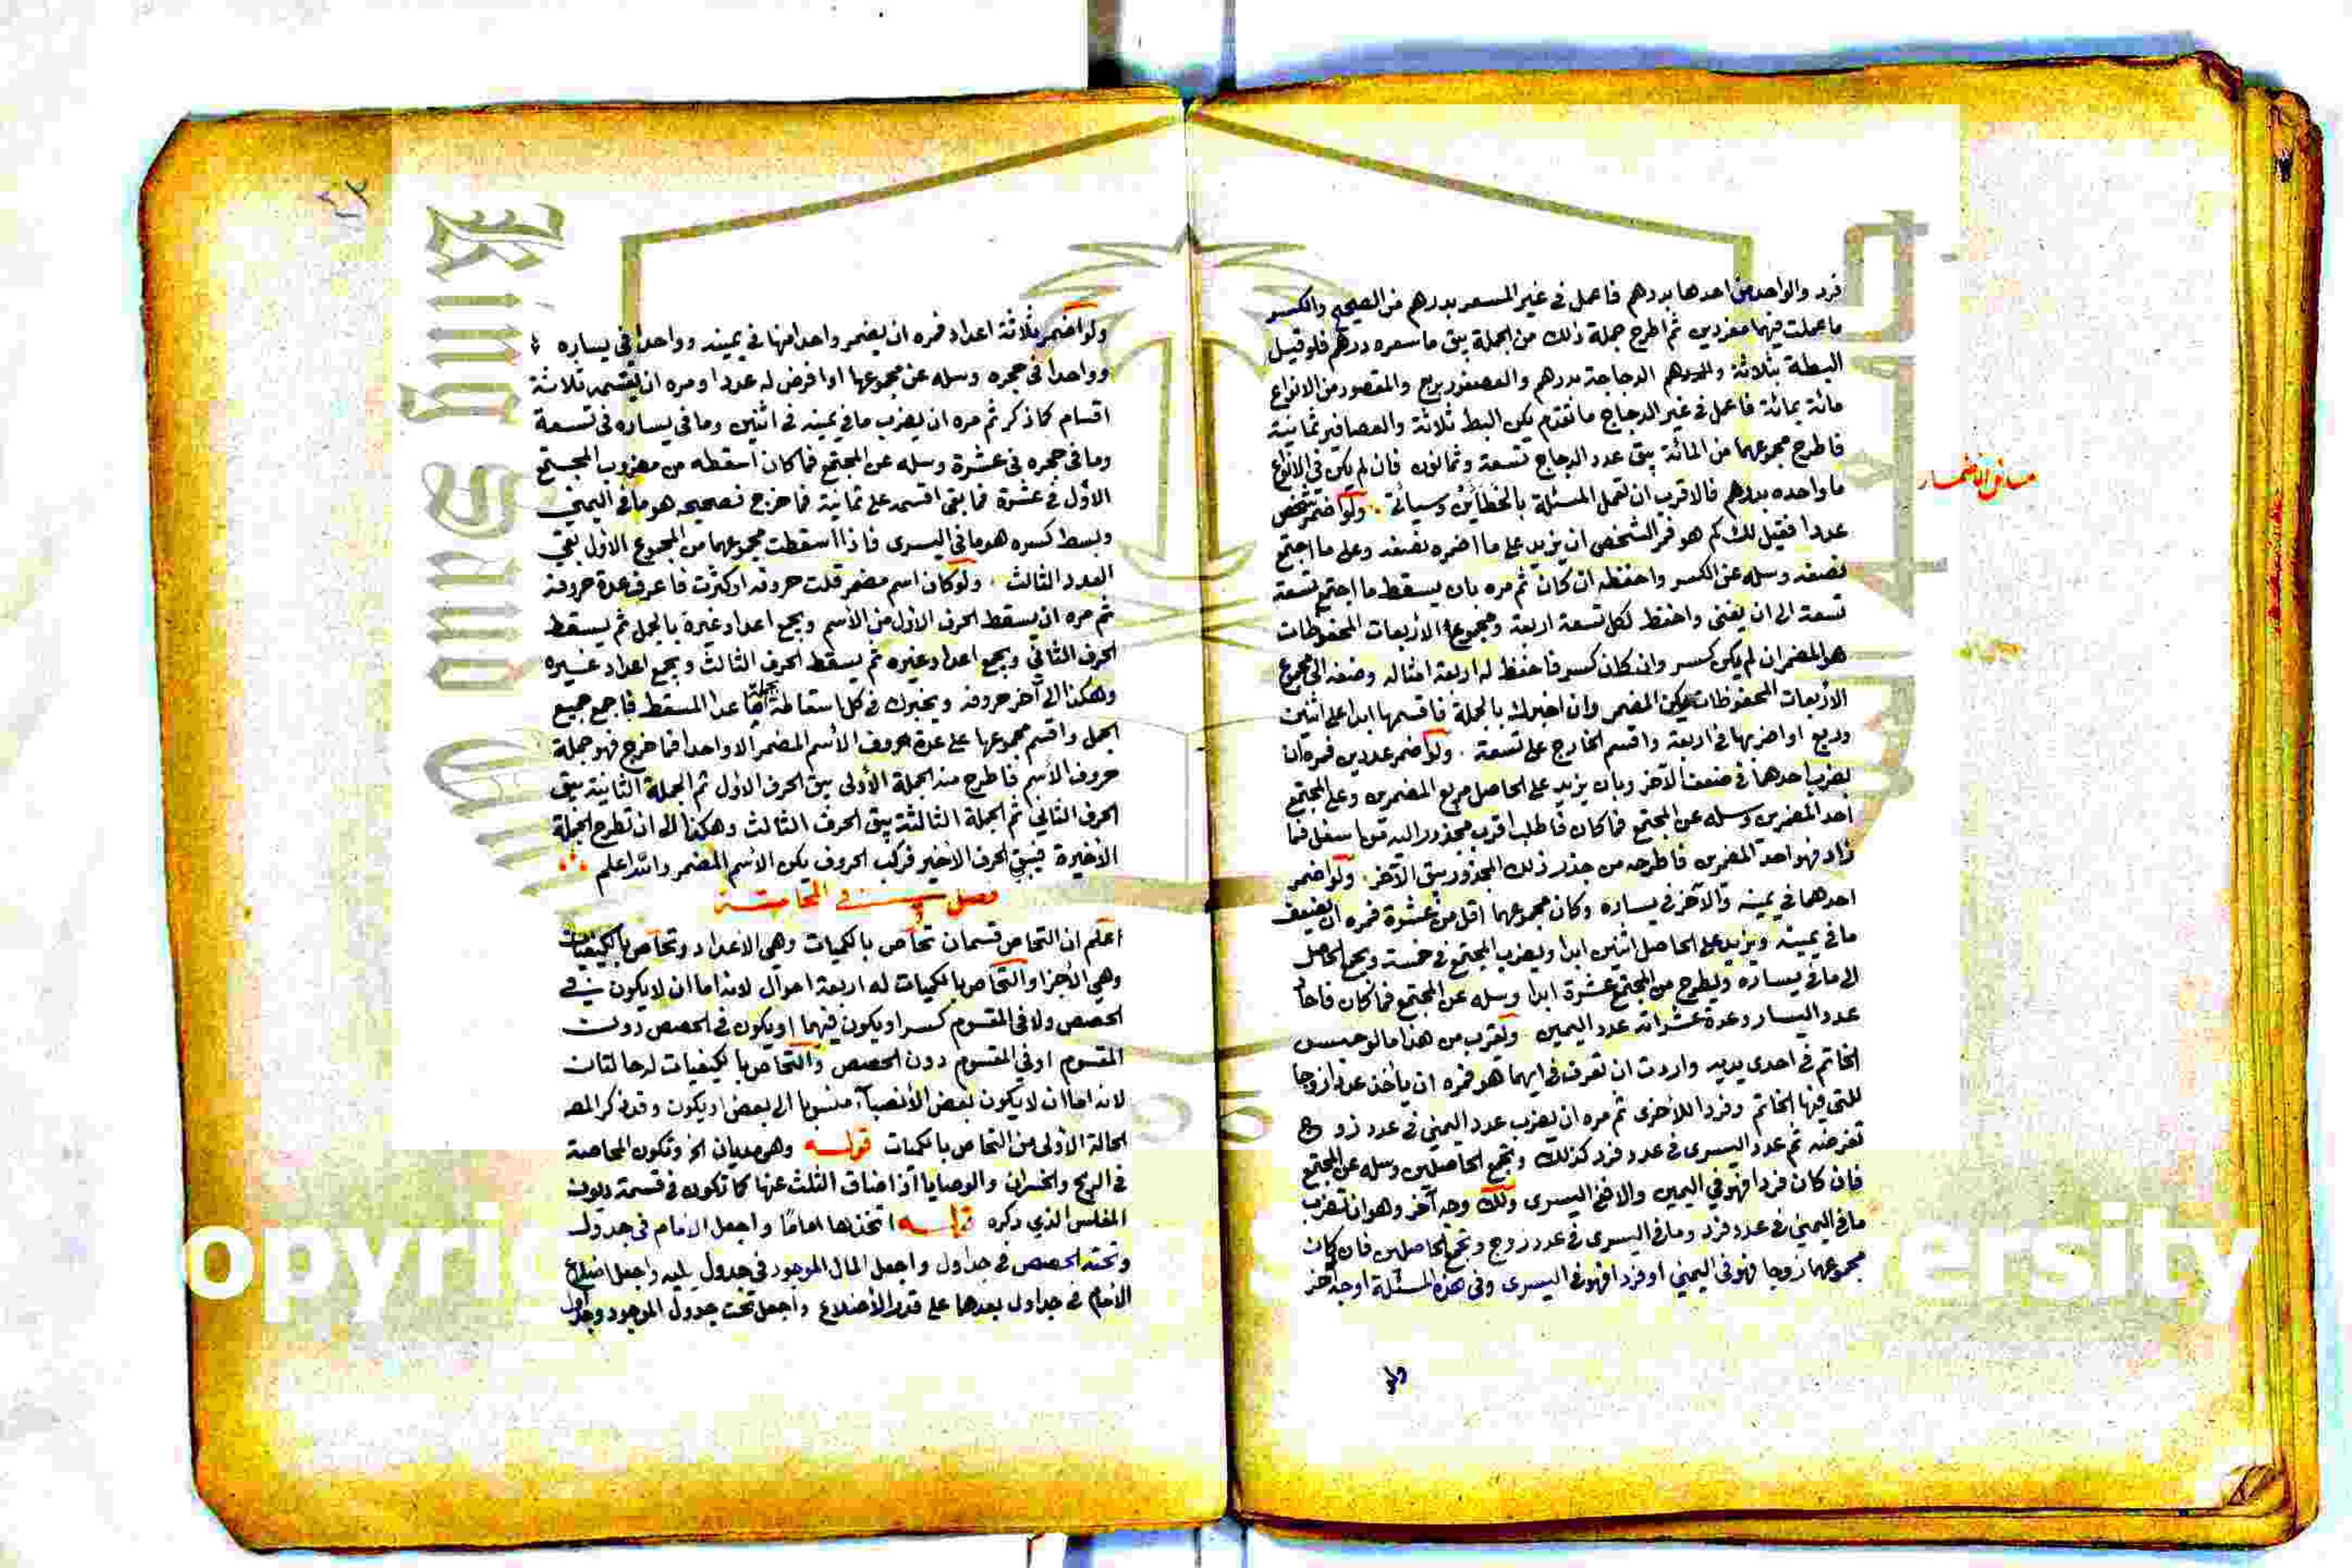 فرد والواحد من احدها بدرهم فاعمل في غير المسعر بدرهم من الصحيح والكسر
ما عملت فيهما مفردين ثم اطرح جملة ذلك من الجملة يبق ما سعره درهم فلو قيل
البطة بثلاثة دراهم الدجاجة بدرهم والعصفور بربع والمقصور من الانواع
مائة بمائة فاعمل في غير الدجاج ما تقدم يكن البط ثلاثة والعصافير ثمانية
فاطرح مجموعهما من المائة يبق عدد الدجاج تسعة وثمانون فان لم يكن في الانواع
ما واحده بدرهم فالاقرب ان تعمل المسئلة بالخطاين وسيأتي . ولو اضمر شخص
مسائل الاضمار
عددا فقيل لك كم هو فمر الشخص ان يزيد على ما اضمره نصفه وعلى ما اجتمع
نصفه وسله عن الكسر واحفظه ان كان ثم مره بان يسقط ما اجتمع تسعة
تسعة الى ان يفنى واحفظ لكل تسعة اربعة ومجموع الاربعات المحفوظات
هو المضمر ان لم يكن كسر وان كان كسر فاحفظ له اربعة امثاله وضفه الى مجموع
الاربعات المحفوظات يكن المضمر وان اخبرك بالجملة فاقسمها ابدا على اثنين
وربع او اضربها في اربعة واقسم الخارج على تسعة . ولو اضمر عددين فمره ان
يضرب احدهما في ضعف الآخر وبان يزيد على الحاصل مربع المضمرين وعلى المجتمع
احد المضمرين وسله عن المجتمع فما كان فاطلب اقرب مجذور اليه مما سفل فما
زاد فهو احد المضمرين فاطرحه من جذر ذلك المجذور يبق الآخر . ولو اضمر
احدهما في يمينه والآخر في يساره وكان مجموعهما اقل من عشرة فمره ان يضعف
ما في يمينه ويزيد على الحاصل اثنين ابدا ويضرب المجتمع في خمسة ويجمع الحاصل
الى ما في يساره وليطرح من المجتمع عشرة ابدا وسله عن المجتمع فما كان فآحاده
عدد اليسار وعدة عشراته عدد اليمين . ولقرب من هذا ما لو حبس
الخاتم في احدى يديه واردت ان تعرف في ايهما هو فمره ان يأخذ عددا زوجا
للتي فيها الخاتم وفردا للاخرى ثم مره ان يضرب عدد اليمنى في عدد زوج
تفرضه ثم عدد اليسرى في عدد فرد كذلك وتجمع الحاصلين وسله عن المجتمع
فان كان فردا فهو في اليمين والا ففي اليسرى ولك وجه آخر وهو ان تضرب
ما في اليمنى في عدد فرد وما في اليسرى في عدد زوج وتجمع الحاصلين فان كان
مجموعهما زوجا فهو في اليمنى او فردا فهو في اليسرى وفي هذه المسئلة اوجه اخر
ولو
ولو اضمر ثلاثة اعداد فمره ان يضمر واحدا منها في يمينه وواحدا في يساره
وواحدا في حجره وسله عن مجموعها او افرض له عددا ومره ان يقسمه ثلاثة
اقسام كما ذكر ثم مره ان يضرب ما في يمينه في اثنين وما في يساره في تسعة
وما في حجره في عشرة وسله عن المجتمع فما كان اسقطه من مضروب المجتمع
الاول في عشرة فما بقي اقسمه على ثمانية فما خرج فصحيحه هو ما في اليمنى
وبسط كسره هو ما في اليسرى فاذا اسقطت مجموعهما من المجموع الاول بقي
العدد الثالث . ولو كان اسم مضمر قلت حروفه او كثرت فاعرف عدة حروفه
ثم مره ان يسقط الحرف الاول من الاسم ويجمع اعداد غيره بالجمل ثم يسقط
الحرف الثاني ويجمع اعداد غيره ثم يسقط الحرف الثالث ويجمع اعداد غيره
وهكذا الى آخر حروفه ويخبرك في كل اسقاطة بجملة ما عدا المسقط فاجمع جميع
الجمل واقسم مجموعها على عدة حروف الاسم المضمر الا واحدا فما خرج فهو جملة
حروف الاسم فاطرح منه الجملة الاولى يبق الحرف الاول ثم الجملة الثانية يبق
الحرف الثاني ثم الجملة الثالثة يبق الحرف الثالث وهكذا الى ان تطرح الجملة
الاخيرة فيبقى الحرف الاخير فركب الحروف يكن الاسم المضمر والله اعلم
فصل في المحاصة
اعلم ان التحاص قسمان تحاص بالكميات وهي الاعداد وتحاص بالكيفيات
وهي الاجزا والتحاص بالكميات له اربعة احوال لانه اما ان لا يكون في
الحصص ولا في المقسوم كسر او يكون فيهما او يكون في الحصص دون
المقسوم او في المقسوم دون الحصص والتحاص بالكيفيات له حالتان
لانه اما ان لا يكون بعض الانصباء منسوبا الى بعض او يكون وقد ذكر المص
الحالة الاولى من التحاص بالكميات قوله وهو مديان الخ وتكون المحاصة
في الربح والخسران والوصايا اذا ضاق الثلث عنها كما تكون في قسمة ديون
المفلس الذي ذكره قوله اتخذها اماما واجعل الامام في جدول
وتحته الحصص في جداول واجعل المال الموجود في جدول يليه واجعل اضلاع
الامام في جداول بعدها على قدر الاضلاع واجعل تحت جدول الموجود وجداول